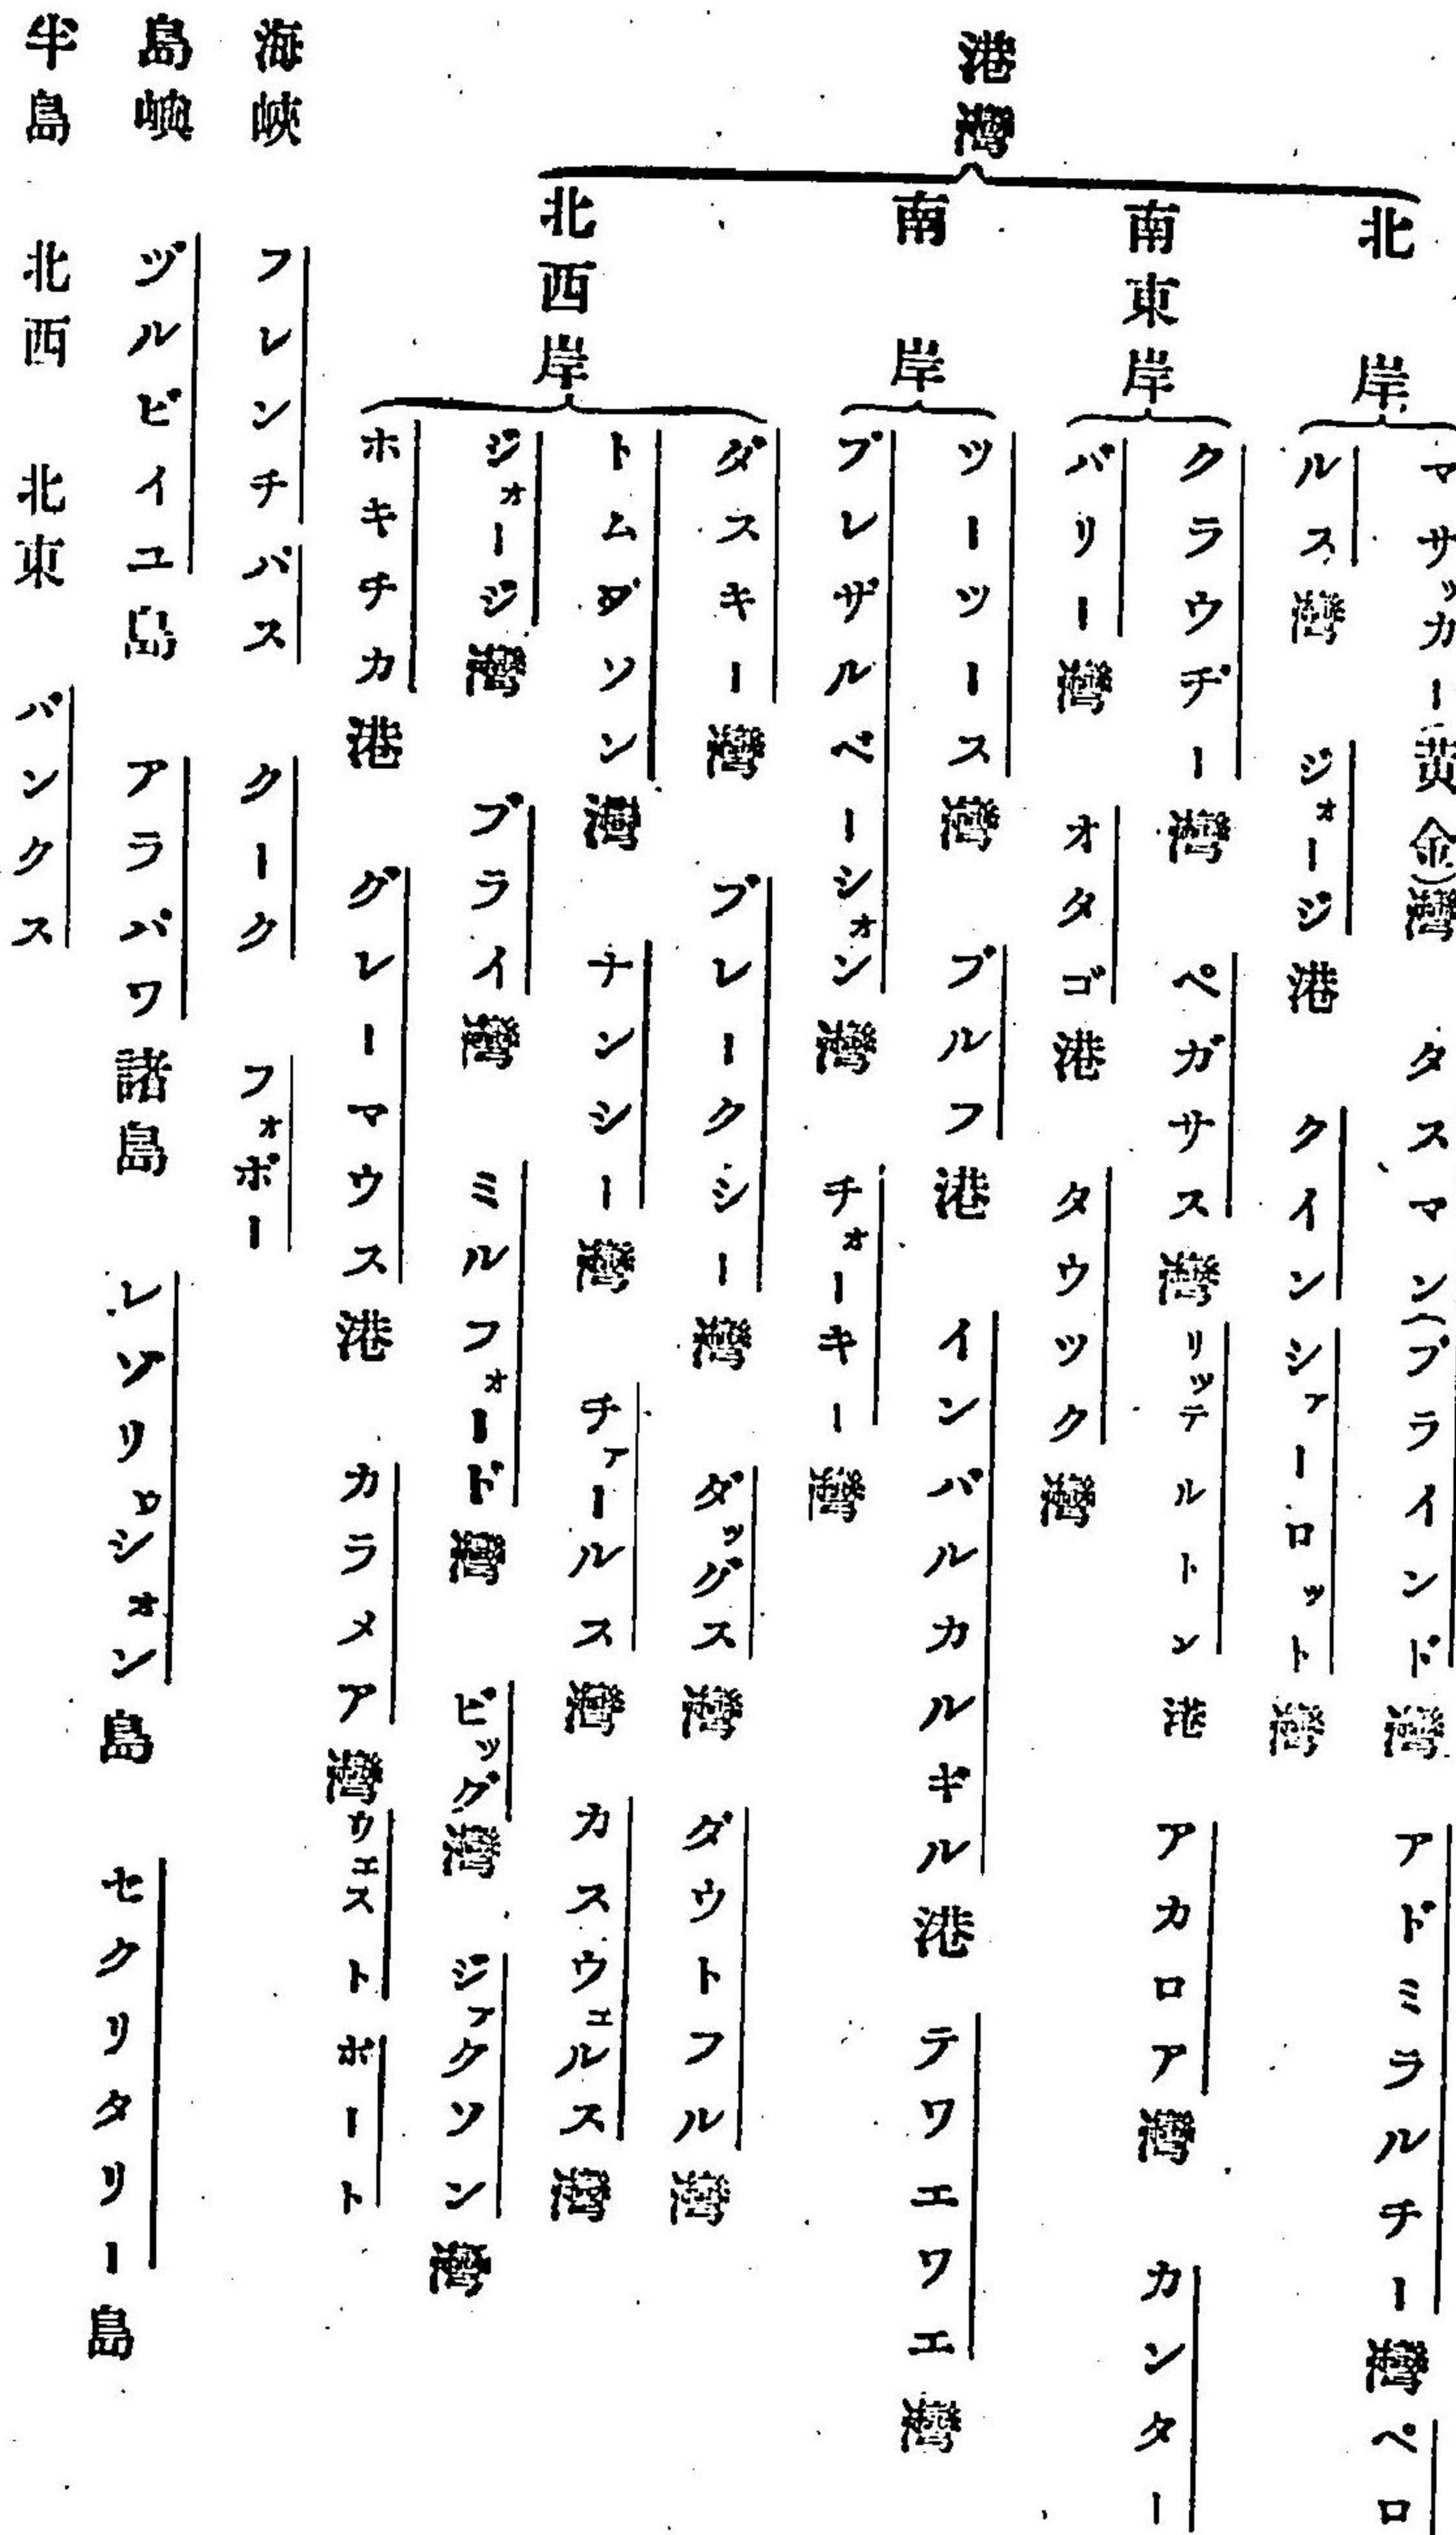 港灣
北岸
マサッカー(黄金)灣 タスマン(ブラインド灣 アドミラルチー灣 ペロ
ルス灣 ジォージ港 クインシァーロット灣
南東岸
クラウヂー灣 ペガサス灣 リッテルトン港 アカロア灣 カンター
バリー灣 オタゴ港 タウツク灣
南岸
ツーツース灣 ブルフ港 インバルカルギル港 テワエワエ灣
プレザルベーシォン灣 チォーキー灣
北西岸
ダスキー灣 ブレークシー灣 ダッグス灣 ダウトフル灣
トムダソン灣 ナンシー灣 チァールス灣 カスウェルス灣
ジォージ灣 ブライ灣 ミルフォード灣 ビッグ灣 ジァクソン灣
ホキチカ港 グレーマウス港 カラメア灣 ウェストポート
海峽 フレンチパス クーク フォポー
島嶼 ヅルビイユ島 アラパワ諸島 レゾリウシォン島 セクリタリー島
半島 北西 北東 バンクス